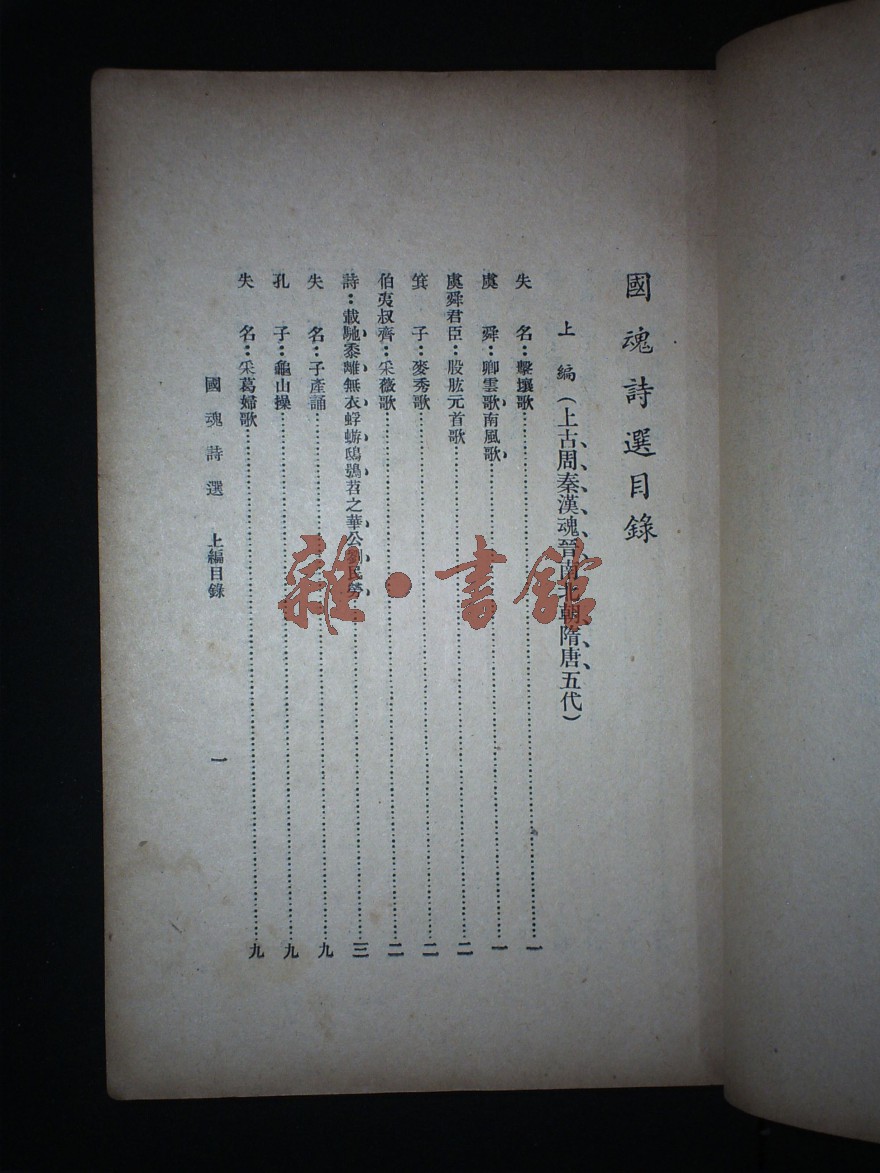 國魂詩選目錄
上編（上古、周、秦、漢、魂、晉、南北朝、隋、唐、五代）
失名：擊壤歌……一
虞舜：卿雲歌、南風歌、……一
虞舜君臣：股肱元首歌……二
箕子：麥秀歌……二
伯夷叔齊：采薇歌……二
詩：載馳、黍離、無衣、蜉蝣、鴟鴞、苕之華、公劉、民勞、……三
失名：子產誦……九
孔子：龜山操……九
失名：采葛婦歌……九
國魂詩選 上編目錄
一
雜·書館